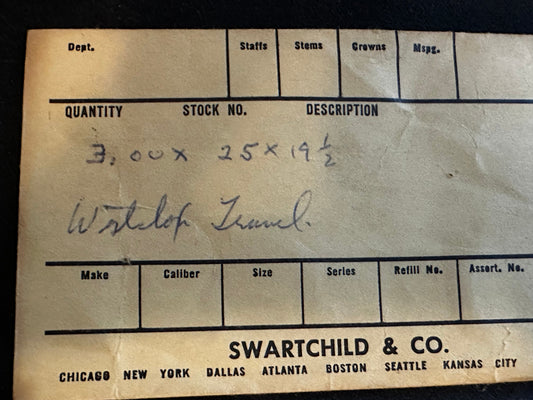 Dept. Staffs Stems Crowns Mspg.
QUANTITY STOCK NO. DESCRIPTION
3.00 x 25 x 19 1/2
Westclox Travel.
Make Caliber Size Series Refill No. Assort. No.
SWARTCHILD & CO.
CHICAGO NEW YORK DALLAS ATLANTA BOSTON SEATTLE KANSAS CITY